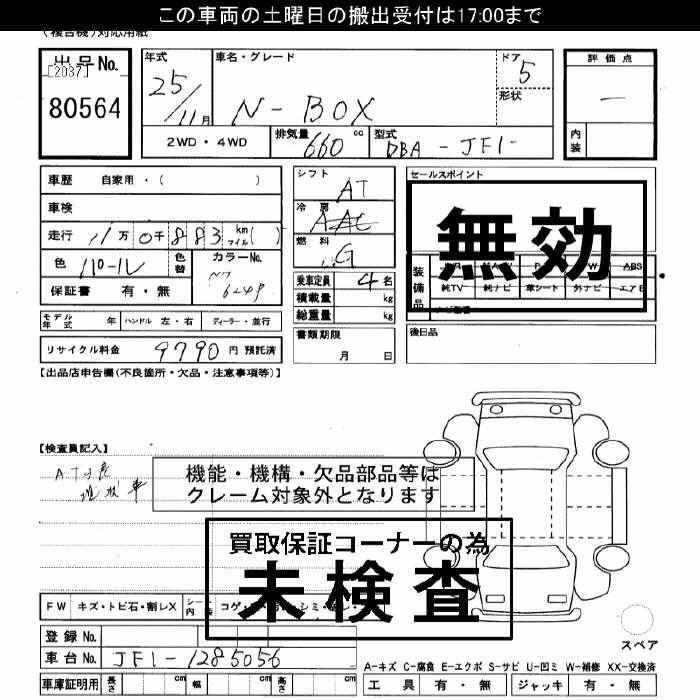 この車両の土曜日の搬出受付は17:00まで
出品No.
[2037]
80564
年式
25/11月
車名・グレード
N-BOX
ドア
5
形状
評価点
—
内装
2WD・4WD
排気量
660 cc
型式
DBA-JF1-
車歴 自家用・( )
車検
走行 11万0千883 km マイル( )
色
色替
カラーNo.
保証書 有・無
シフト
AT
冷房
AAC
燃料
G
乗車定員 4名
積載量 kg
総重量 kg
セールスポイント
無効
装備品
ABS
純TV 純ナビ 革シート 外ナビ エアB
モデル年式 年 ハンドル 左・右 ディーラー・並行
リサイクル料金 9790 円 預託済
書類期限
月 日
後日品
【出品店申告欄(不良箇所・欠品・注意事項等)】
【検査員記入】
機能・機構・欠品部品等は
クレーム対象外となります
買取保証コーナーの為
未検査
FW キズ・トビ石・割レX シート内装
登録No.
車台No. JF1-1285056
車庫証明用 長さ cm 幅 cm 高さ cm
スペア
A-キズ C-腐食 E-エクボ S-サビ U-凹ミ W-補修 XX-交換済
工具 有・無 ジャッキ 有・無